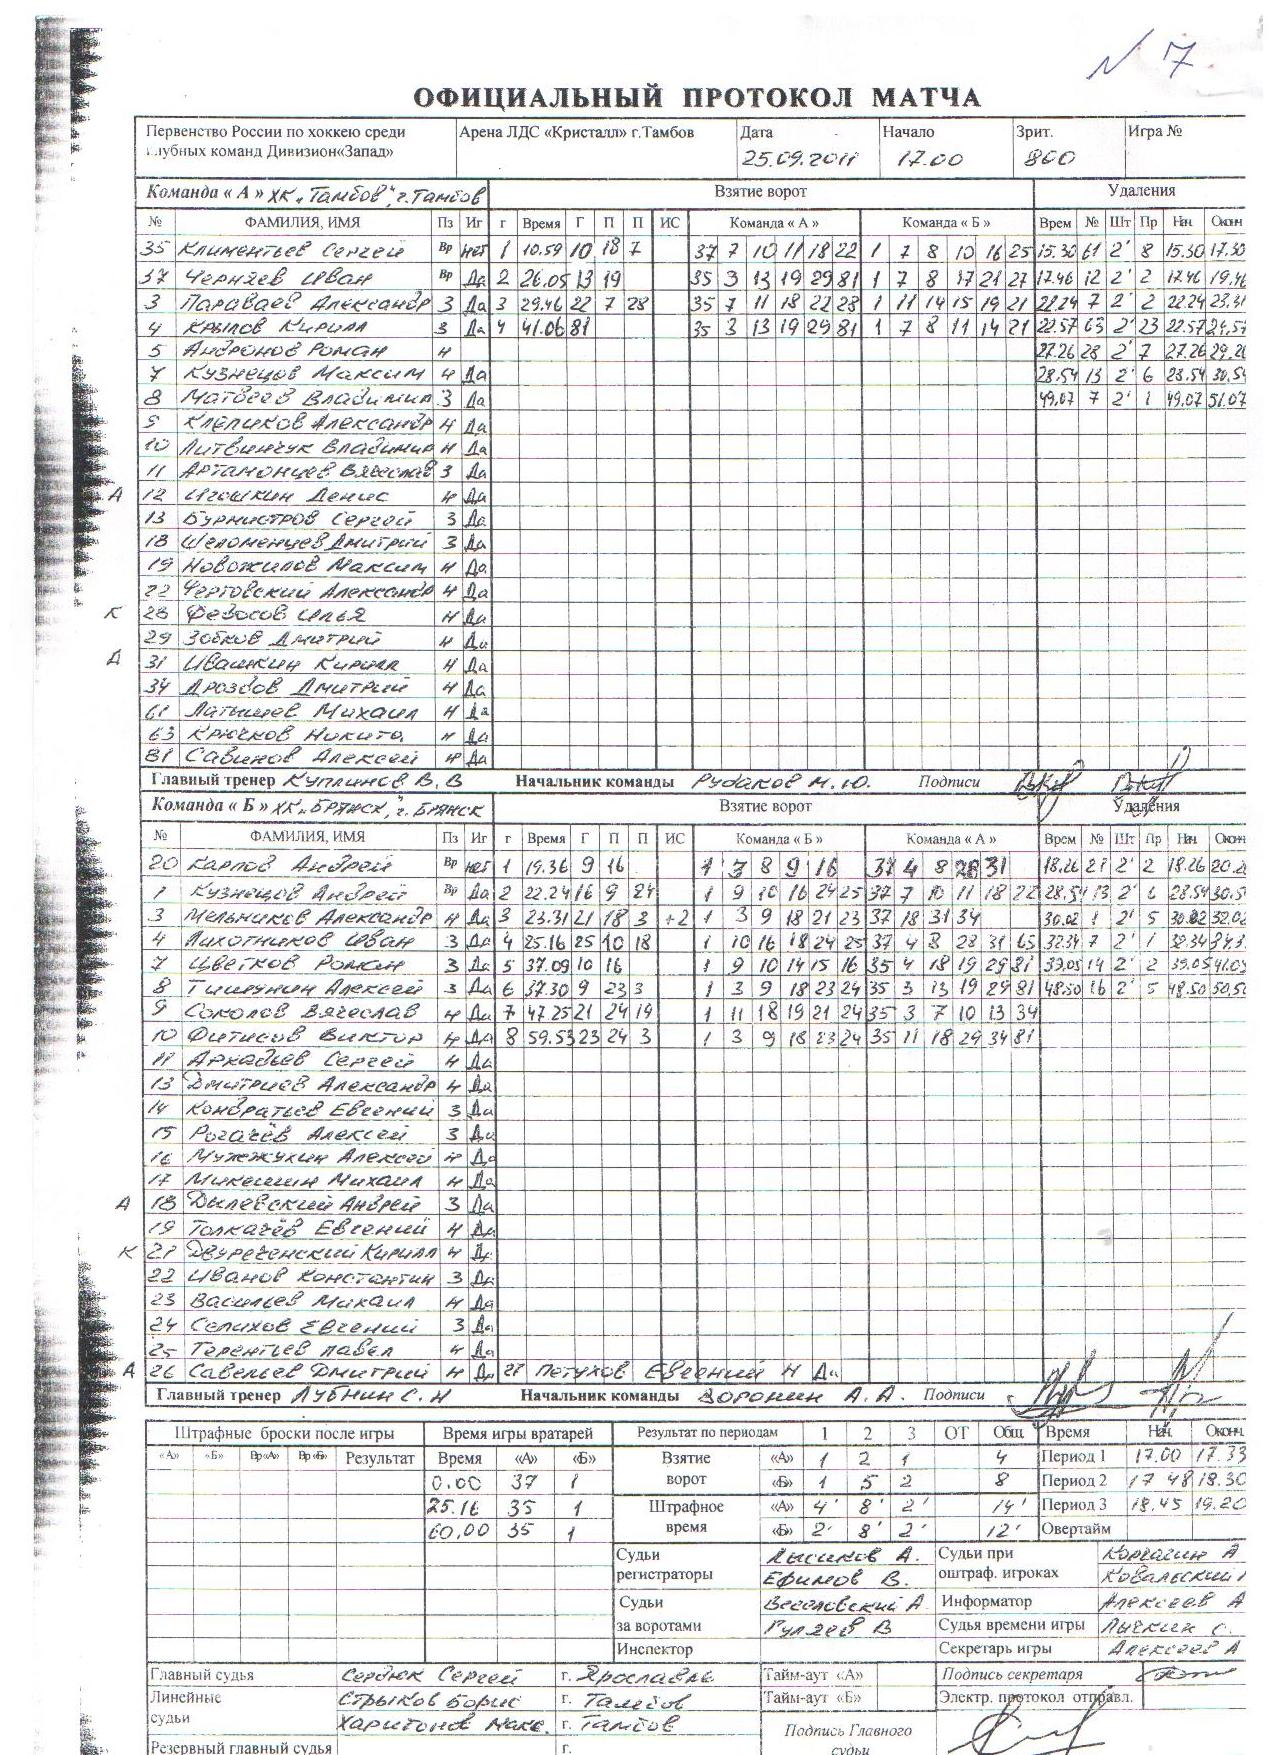 N 7
ОФИЦИАЛЬНЫЙ ПРОТОКОЛ МАТЧА
Первенство России по хоккею среди клубных команд Дивизион«Запад» Арена ЛДС «Кристалл» г.Тамбов Дата 25.09.2011 Начало 17.00 Зрит. 800 Игра №
Команда « А » ХК „Тамбов", г.Тамбов Взятие ворот Удаления
№ ФАМИЛИЯ, ИМЯ Пз Иг г Время Г П П ИС Команда « А » Команда « Б » Врем № Шт Пр Нач Оконч
35 Климентьев Сергей Вр нет 1 10.59 10 18 7 37 7 10 11 18 22 1 7 8 10 16 25 15.30 61 2' 8 15.30 17.30
37 Черняев Иван Вр Да 2 26.05 13 19 35 3 13 19 29 81 1 7 8 17 21 27 17.46 12 2' 2 17.46 19.46
3 Параваев Александр З Да 3 29.46 22 7 28 35 7 11 18 22 28 1 11 14 15 19 21 22.24 7 2' 2 22.24 23.31
4 Крылов Кирилл З Да 4 41.06 81 35 3 13 19 29 81 1 7 8 11 14 21 22.57 63 2' 23 22.57 24.57
5 Андронов Роман Н 27.26 28 2' 7 27.26 29.26
7 Кузнецов Максим Н Да 28.54 13 2' 6 28.54 30.54
8 Матвеев Владимир З Да 49.07 7 2' 1 49.07 51.07
9 Клепиков Александр Н Да
10 Литвинчук Владимир Н Да
11 Артамонцев Вячеслав З Да
А 12 Игошкин Денис Н Да
13 Бурмистров Сергей З Да
18 Шеломенцев Дмитрий З Да
19 Новожилов Максим Н Да
22 Чертовский Александр Н Да
К 28 Федосов Илья Н Да
29 Зобков Дмитрий Н Да
А 31 Ивашкин Кирилл Н Да
34 Дроздов Дмитрий Н Да
61 Латышев Михаил Н Да
63 Крючков Никита Н Да
81 Савинов Алексей Н Да
Главный тренер Куплинов В. В Начальник команды Рудаков М.Ю. Подписи
Команда « Б » ХК„Брянск", г. Брянск Взятие ворот Удаления
№ ФАМИЛИЯ, ИМЯ Пз Иг г Время Г П П ИС Команда « Б » Команда « А » Врем № Шт Пр Нач Оконч
20 Карпов Андрей Вр нет 1 19.36 9 16 1 8 9 16 37 4 8 28 31 18.26 27 2' 2 18.26
1 Кузнецов Андрей Вр Да 2 22.24 16 9 24 1 9 10 16 24 25 37 7 10 11 18 22 28.54 13 2' 6 28.54
3 Мельников Александр Н Да 3 23.31 21 18 3 +2 1 3 9 18 21 23 37 18 31 34 30.02 1 2' 5 30.02 32.02
4 Лихотников Иван З Да 4 25.16 25 10 18 1 10 16 18 24 25 37 4 8 28 31 63 32.34 7 2' 1 32.34
7 Цветков Роман З Да 5 37.09 10 16 1 9 10 14 15 16 35 4 18 19 29 81 39.05 14 2' 2 39.05 41.05
8 Тишунин Алексей З Да 6 37.30 9 23 3 1 3 9 18 23 24 35 3 13 19 29 81 48.50 16 2' 5 48.50 50.50
9 Соколов Вячеслав Н Да 7 47.25 21 24 19 1 11 18 19 21 24 35 3 7 10 13 34
10 Фитисов Виктор Н Да 8 59.53 23 24 3 1 3 9 18 23 24 35 11 18 29 34 81
11 Аркадьев Сергей Н Да
13 Дмитриев Александр Н Да
14 Кондратьев Евгений З Да
15 Рогачёв Алексей З Да
16 Мужжухин Алексей Н Да
17 Микешин Михаил Н Да
А 18 Дылевский Андрей З Да
19 Толкачёв Евгений Н Да
К 21 Двуреченский Кирилл Н Да
22 Иванов Константин З Да
23 Васильев Михаил Н Да
24 Селихов Евгений З Да
25 Терентьев Павел Н Да
А 26 Савельев Дмитрий Н Да 27 Петухов Евгений Н Да
Главный тренер Лубнин С. Н Начальник команды Воронин А. А. Подписи
Штрафные броски после игры Время игры вратарей Результат по периодам 1 2 3 ОТ Общ Время Нач. Оконч.
«А» «Б» Вр«А» Вр«Б» Результат Время «А» «Б» Взятие ворот «А» 1 2 1 4 Период 1 17.00 17.33
0.00 37 1 «Б» 1 5 2 8 Период 2 17 48 18.30
25.16 35 1 Штрафное время «А» 4' 8' 2' 14' Период 3 18.45 19.20
60.00 35 1 «Б» 2' 8' 2' 12' Овертайм
Судьи регистраторы Лысиков А. Судьи при оштраф. игроках Корчагин А
Ефимов В. Ковальский
Судьи за воротами Веселовский А Информатор Алексеев А
Гуляев В Судья времени игры Лычкин С.
Инспектор Секретарь игры Алексеев А
Главный судья Сердюк Сергей г. Ярославль Тайм-аут «А» Подпись секретаря
Линейные судьи Стрыков Борис г. Тамбов Тайм-аут «Б» Электр. протокол отправл.
Харитонов Макс. г. Тамбов Подпись Главного судьи
Резервный главный судья г.